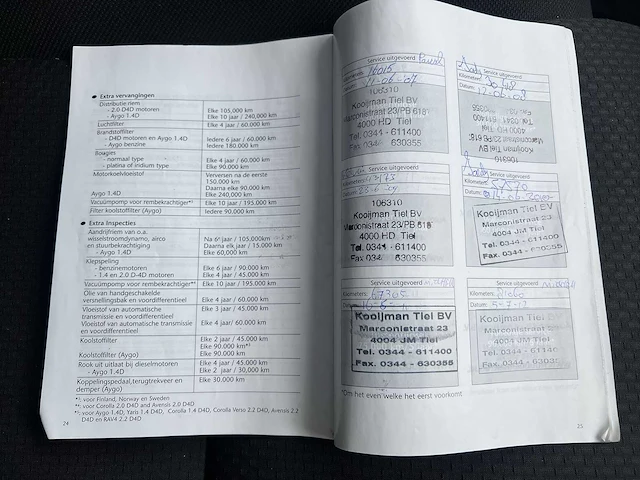 Extra vervangingen
Distributie riem
- 2.0 D4D motoren Elke 105,000 km
- Aygo 1.4D Elke 10 jaar / 240,000 km
Luchtfilter Elke 4 jaar / 60.000 km
Brandstoffilter
- D4D motoren en Aygo 1.4D Iedere 6 jaar / 60.000 km
- Aygo benzine Iedere 180.000 km
Bougies
- normal type Elke 4 jaar / 60.000 km
- platina of iridium type Elke 90.000 km
Motorkoelvloeistof Verversen na de eerste
150,000 km
Daarna elke 90.000 km
Aygo 1.4D Elke 240,000 km
Vacuümpomp voor rembekrachtiger*¹ Elke 10 jaar / 195.000 km
Filter koolstoffilter (Aygo) Iedere 90.000 km
Extra Inspecties
Aandrijfriem van o.a.
wisselstroomdynamo, airco Na 6e jaar / 105,000km
en stuurbekrachtiging Daarna elk jaar / 15.000 km
- Aygo 1.4D Elke 60,000 km
Klepspeling
- benzinemotoren Elke 6 jaar / 90.000 km
- 1.4 en 2.0 D4D motoren Elke 4 jaar / 45.000 km
Vacuümpomp voor rembekrachtiger** Elke 10 jaar / 195.000 km
Olie van handgeschakelde
versnellingsbak en voordifferentieel Elke 4 jaar / 60.000 km
Vloeistof van automatische Elke 3 jaar / 45.000 km
transmissie en voordifferentieel
Vloeistof van automatische transmissie Elke 4 jaar/ 60.000 km
en voordifferentieel
Koolstoffilter Elke 2 jaar / 45.000 km
Elke 90.000 km*³
Koolstoffilter (Aygo) Elke 90.000 km
Rook uit uitlaat bij dieselmotoren Elke 4 jaar / 45.000 km
- Aygo 1.4D Elke 2 jaar / 30,000 km
Koppelingspedaal,terugtrekveer en Elke 30,000 km
demper (Aygo)
*¹: voor Finland, Norway en Sweden
**: voor Corolla 2.0 D4D and Avensis 2.0 D4D
*³: voor Aygo 1.4D, Yaris 1.4 D4D, Corolla 1.4 D4D, Corolla Verso 2.2 D4D, Avensis 2.2
D4D en RAV4 2.2 D4D
24
Service uitgevoerd
Kilometers:
Datum:
106310
Kooijman Tiel BV
Marconistraat 23/PB 618
4000 HD Tiel
Tel. 0344 - 611400
Fax. 0344 - 630355
Service uitgevoerd
Kilometers:
Datum:
106310
Kooijman Tiel BV
Marconistraat 23/PB 618
4000 HD Tiel
Tel. 0344 - 611400
Service uitgevoerd
106310
Kooijman Tiel BV
Marconistraat 23/PB 618
4000 HD Tiel
Tel. 0344 - 611400
Fax. 0344 - 630355
Service uitgevoerd
Kilometers:
Kooijman Tiel BV
Marconistraat 23
4004 JM Tiel
Tel. 0344 - 611400
Fax. 0344 - 630355
Service uitgevoerd
Kilometers: 67305
Kooijman Tiel BV
Marconistraat 23
4004 JM Tiel
Tel. 0344 - 611400
Fax. 0344 - 630355
Service uitgevoerd
Kilometers:
Datum:
Kooijman Tiel BV
Marconistraat 23
4004 JM Tiel
Tel. 0344 - 611400
Fax. 0344 - 630355
*Om het even welke het eerst voorkomt
25